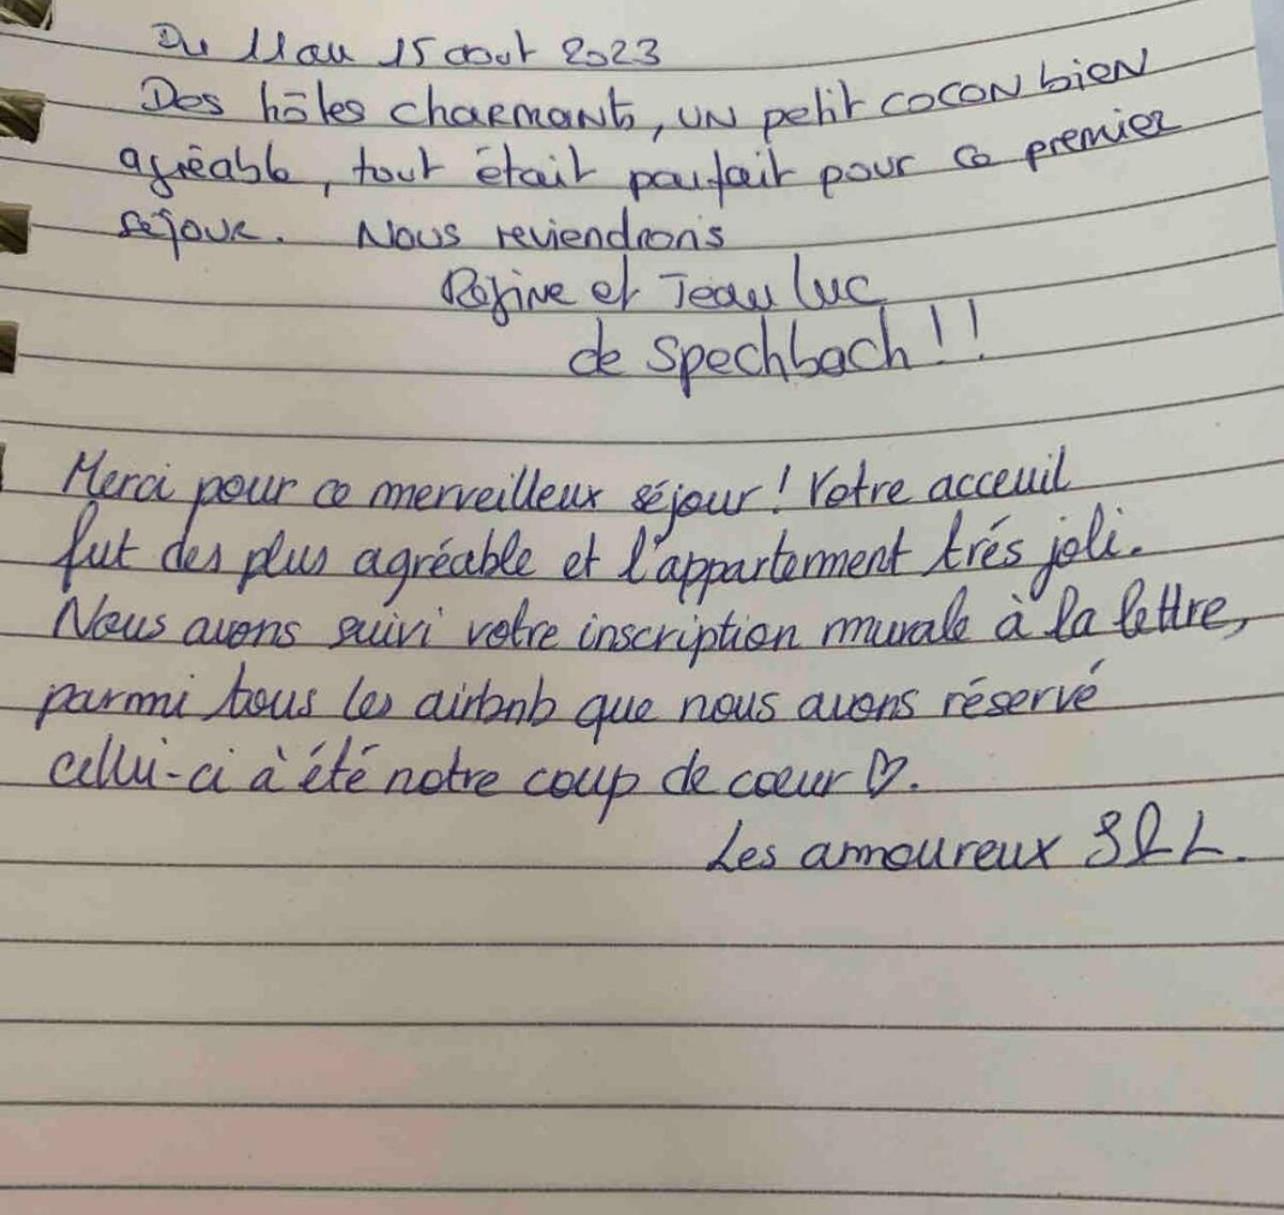 Du 11 au 15 aout 2023
Des hôtes charmants, un petit cocon bien
agréable, tout était parfait pour ce premier
séjour. Nous reviendrons
Régine et Jean Luc
de Spechbach !!
Merci pour ce merveilleux séjour ! Votre acceuil
fut des plus agréable et l'appartemment trés joli.
Nous avons suivi votre inscription murale à la lettre,
parmi tous les airbnb que nous avons réservé
cellui-ci à été notre coup de cœur ♡.
Les amoureux